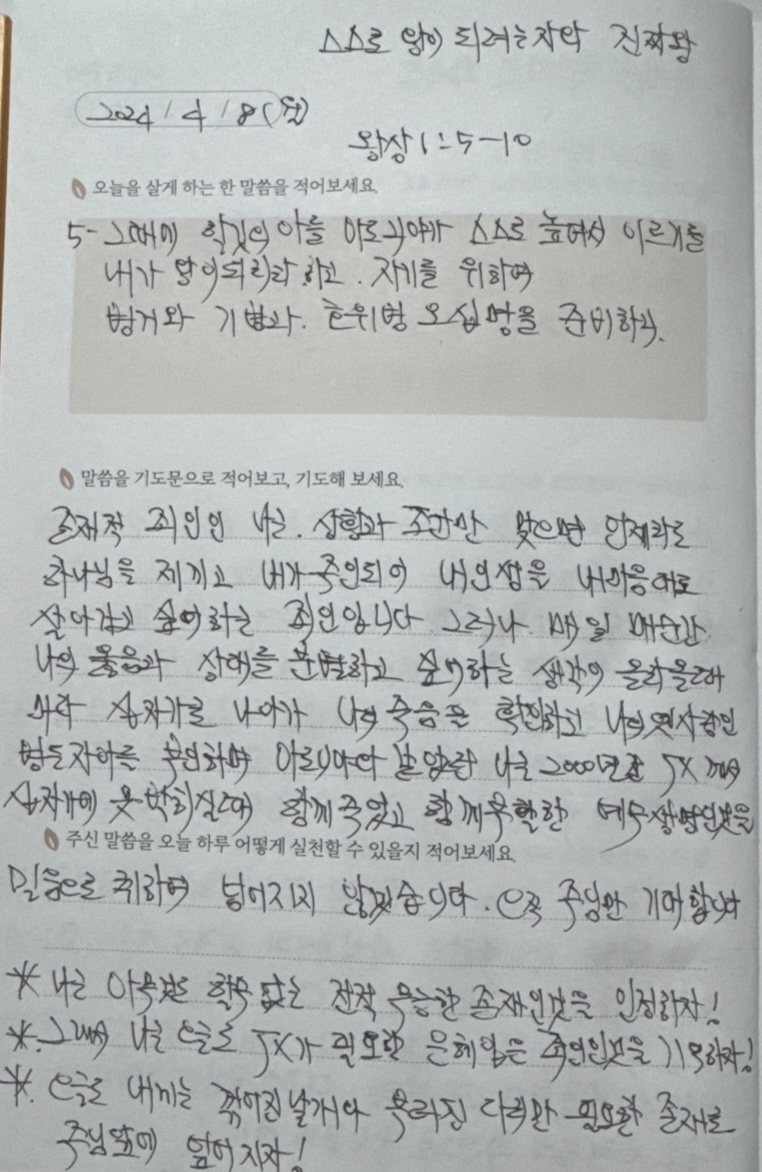 스스로 왕이 되려는자와 진짜왕
2024/4/8(월)
왕상1:5-10
오늘을 살게 하는 한 말씀을 적어보세요.
5- 그때에 학깃의 아들 아도니야가 스스로 높여서 이르기를
내가 왕이되리라 하고. 자기를 위하여
병거와 기병과. 호위병 오십명을 준비하니.
말씀을 기도문으로 적어보고, 기도해 보세요.
존재적 죄인인 나는. 상황과 조건만 맞으면 언제라도
하나님을 제끼고 내가 주인되어 내인생을 내마음대로
살아가고 싶어하는 죄인입니다. 그러나 매일 매순간
나의 옳음과 상태를 분별하고 싶어하는 생각이 올라올때
마다 십자가로 나아가 나의 죽음을 확인하고 나의옛사람인
병든자아를 부인하며 나는 2000년전 JX께서
십자가에 못박히실때 함께죽었고 함께부활한 예수생명인것을
주신 말씀을 오늘 하루 어떻게 실천할 수 있을지 적어보세요.
믿음으로 취하며 넘어지지 않겠습니다. 오직 주님만 기대합니다
* 나는 아무것도 할수 없는 전적 무능한 존재인것을 인정하자!
*. 그래서 나는 오늘도 JX가 필요한 은혜입은 죄인인것을 기억하자!
*. 오늘도 내게는 꺾어진날개와 부러진 다리만 필요한 존재로
주님앞에 엎어지자!